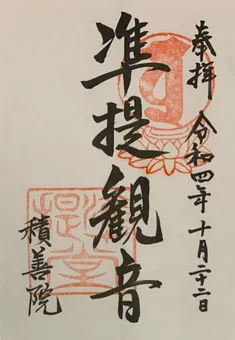 奉拝 令和四年十月二十二日
准提観音
積善院